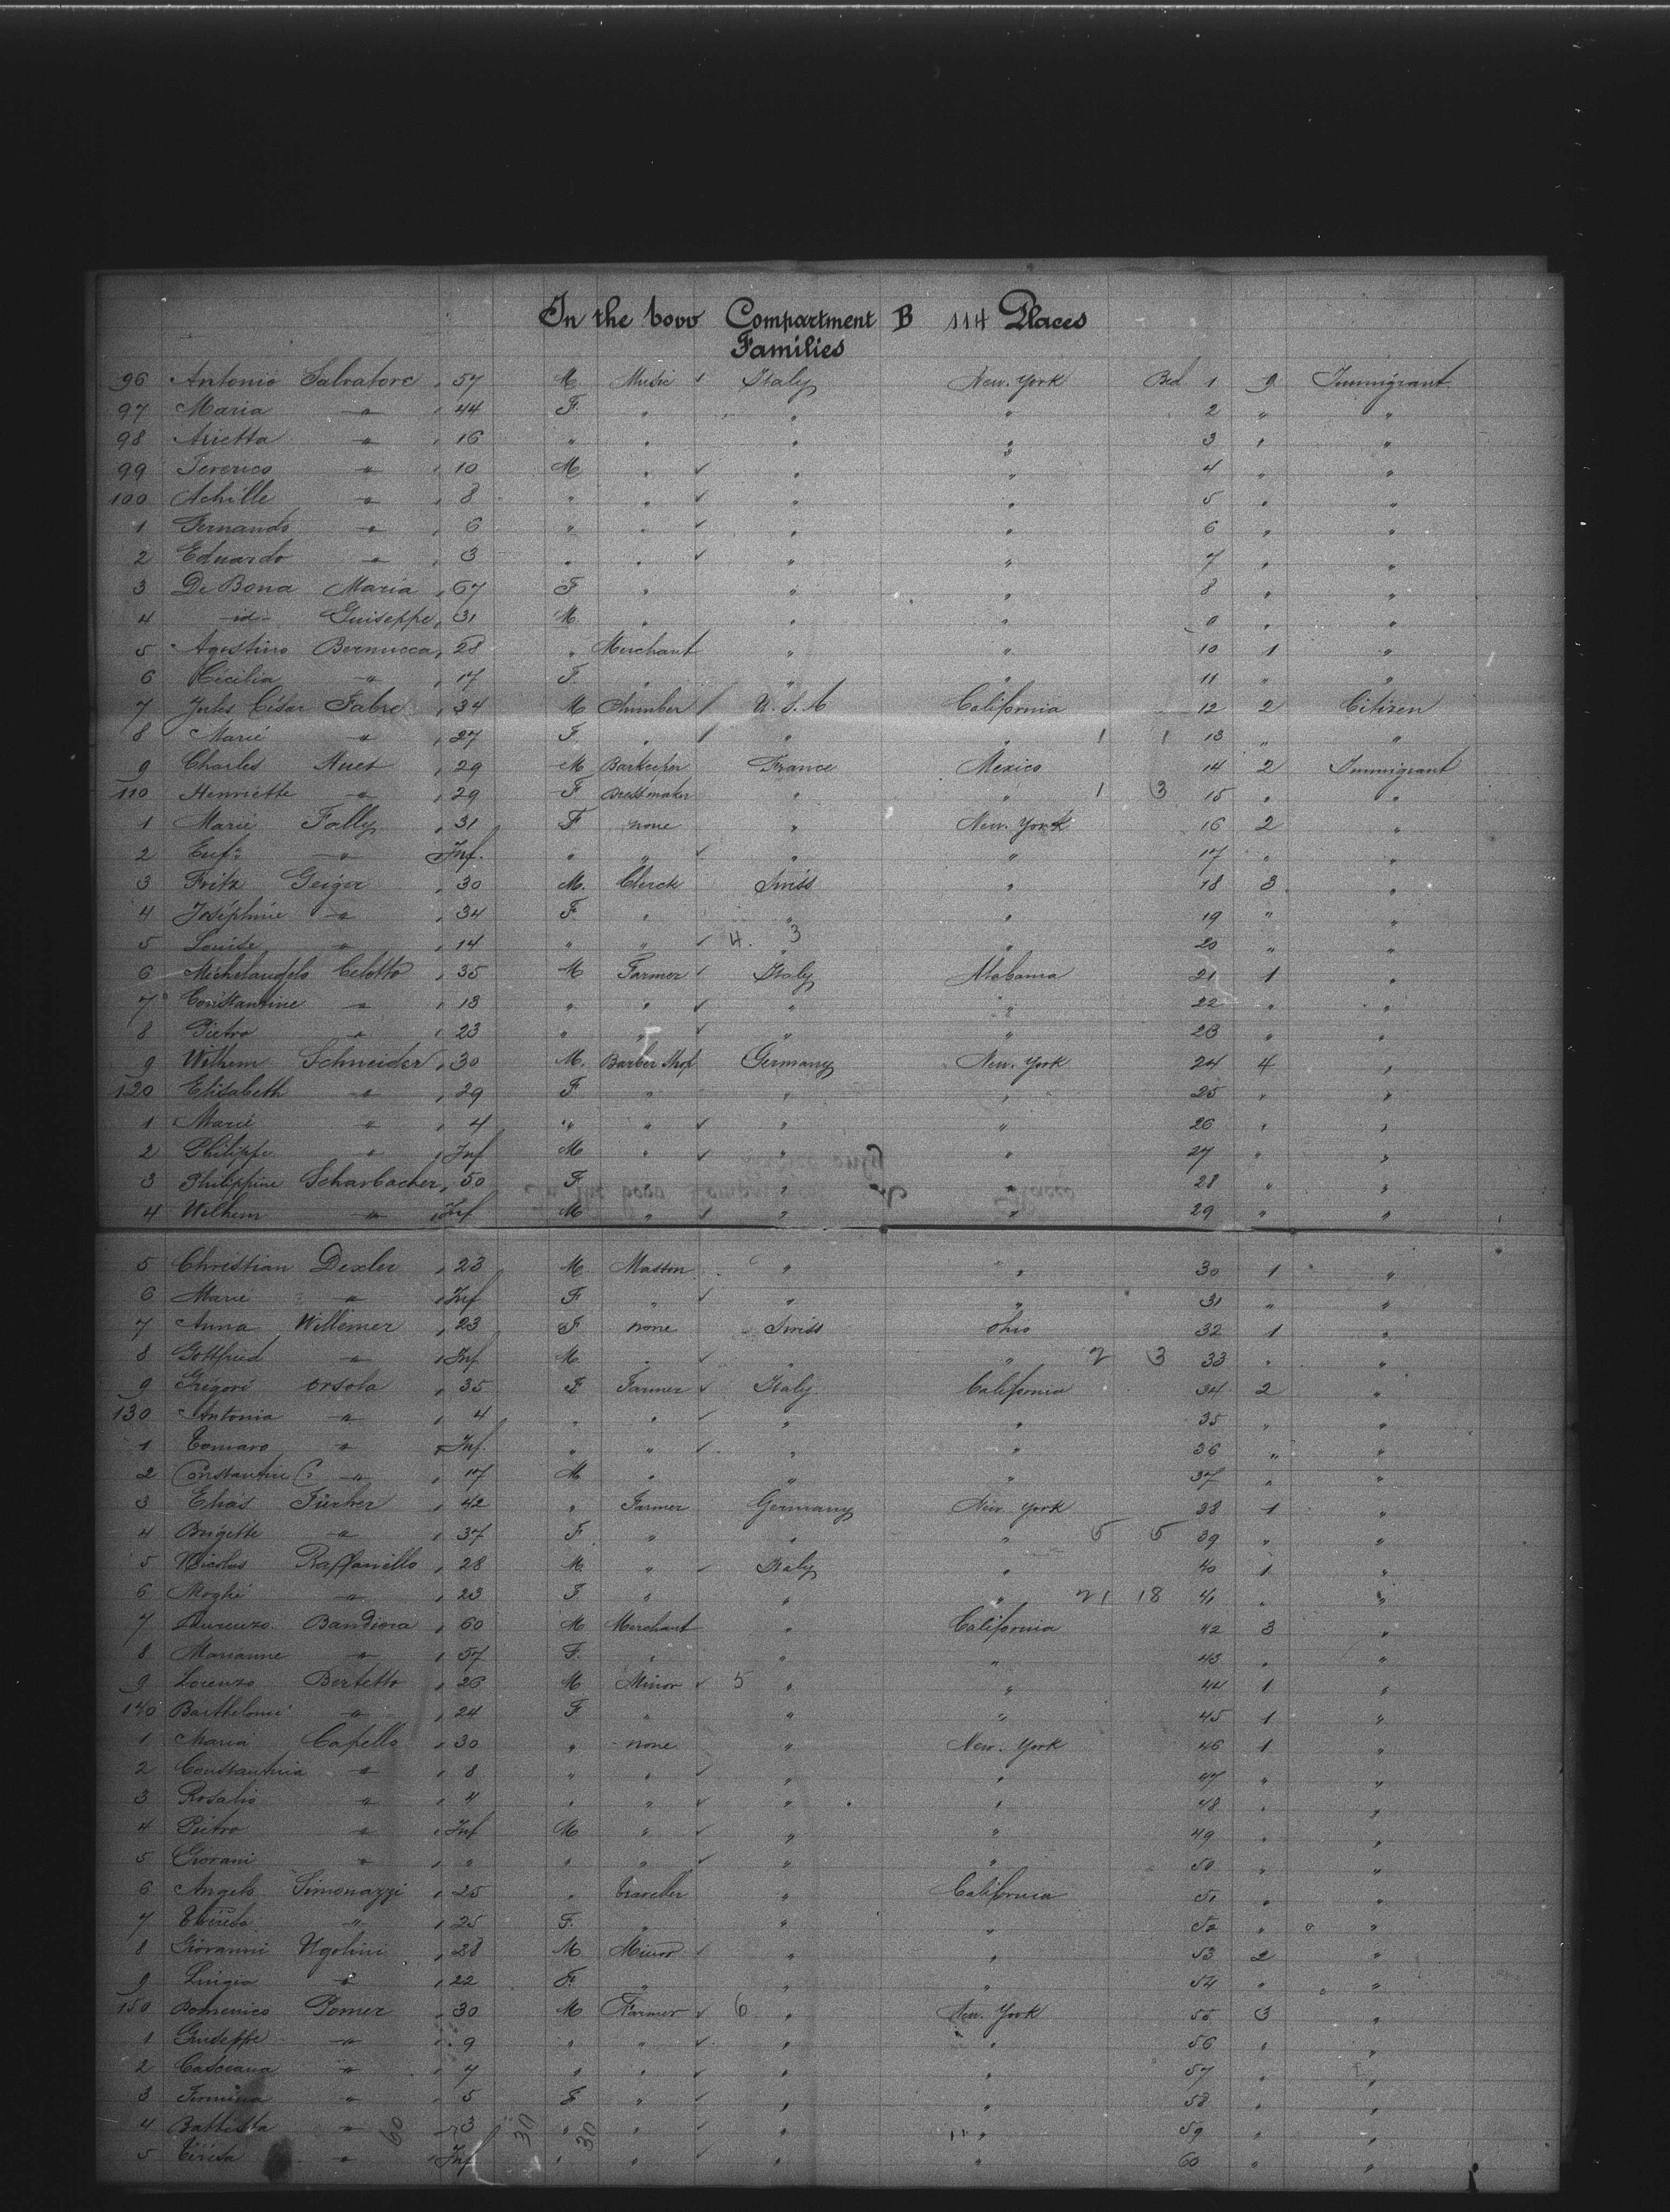 In the bow Compartment B 114 Places
Families
96 Antonio Salvatore " 57 M Music ✓ Italy New. York Bed 1 9 Immigrant
97 Maria " " 44 F " " " 2 " "
98 Arietta " " 16 " " " " 3 " "
99 " " 10 M " ✓ " " 4 " "
100 Achille " " 8 " " ✓ " " 5 " "
1 Fernando " " 6 " " ✓ " " 6 " "
2 Eduardo " " 3 " " ✓ " " 7 " "
3 De Bona Maria " 67 F " " " 8 " "
4 id Guiseppe " 31 M " " " 9 " "
5 Agostino Bernucca " 28 " Merchant " " 10 1 "
6 Cicilia " " 17 F " " " 11 " "
7 Jules César Fabre " 34 M Plumber / U.S.A California 12 2 Citizen
8 Marie " " 27 F. " / " " 1 1 13 " "
9 Charles Huet " 29 M Barkeeper France Mexico 14 2 Immigrant
110 Henriette " " 29 F Dressmaker " " 1 3 15 " "
1 Marie Fally " 31 F none " New. York 16 2 "
2 " Inf. " " ✓ " " 17 " "
3 Fritz Geiger " 30 M. Clerck Swiss " 18 3 "
4 Joséphine " " 34 F " " " 19 " "
5 Louise " " 14 " " ✓ 4. 3 " " 20 " "
6 Michelangelo Celotto " 35 M Farmer ✓ Italy Alabama 21 1 "
7 Constantine " " 13 " " ✓ " " 22 " "
8 Pietro " " 23 " " ✓ " " 23 " "
9 Wilhem Schneider " 30 M. Barber Shop Germany New. York 24 4 "
120 Elisabeth " " 29 F " " " 25 " "
1 Marie " " 4 " " ✓ " " 26 " "
2 Philippe " " Inf M " ✓ " " 27 " "
3 Philippine Scharbacher " 50 F " " " 28 " "
4 Wilhem " " Inf M " ✓ " " 29 " "
5 Christian Dexler " 23 M Masson " " 30 1 "
6 Marie " " Inf F " ✓ " " 31 " "
7 Anna Willemer " 23 F none Swiss Ohio 32 1 "
8 Gottfried " " Inf M " ✓ " " 2 3 33 " "
9 Grégori Orsola " 35 F Farmer ✓ Italy California 34 2 "
130 Antonia " " 4 " " ✓ " " 35 " "
1 Tomaro " " Inf. " " ✓ " " 36 " "
2 Constantin C. " " 17 M " " " 37 " "
3 Elias Fürher " 42 " Farmer Germany New York 38 1 "
4 Brigitte " " 37 F " " " 5 5 39 " "
5 Nicolas Raffaniello " 28 M " ✓ Italy " 40 1 "
6 " " 23 F " " " 21 18 41 " "
7 Bandiera " 60 M Merchant " California 42 3 "
8 Marianne " " 57 F. " " " 43 " "
9 Lorenzo Bertetto " 26 M Minor ✓ 5 " " 44 1 "
140 " " 24 F " " " 45 1 "
1 Maria Capello " 30 " none " New. York 46 1 "
2 Constantina " " 8 " " ✓ " " 47 " "
3 Rosalio " " 4 " " ✓ " " 48 " "
4 Pietro " " Inf M " ✓ " " 49 " "
5 Giovani " " " " " ✓ " " 50 " "
6 Angelo Simonazzi " 25 " Traveller " California 51 " "
7 " " 25 F. " " " 52 " "
8 Giovanni Ugolini " 28 M Minor ✓ " " 53 2 "
9 Luigia " " 22 F. " " " 54 " "
150 Domenico Pomer " 30 M Farmer ✓ 6 " New. York 55 3 "
1 Guiseppe " " 9 " " ✓ " " 56 " "
2 " " 7 " " ✓ " " 57 " "
3 " " 5 F " ✓ " " 58 " "
4 Battista " 60 " 3 30 " 30 " ✓ " " 59 " "
5 " " Inf " " ✓ " " 60 " "